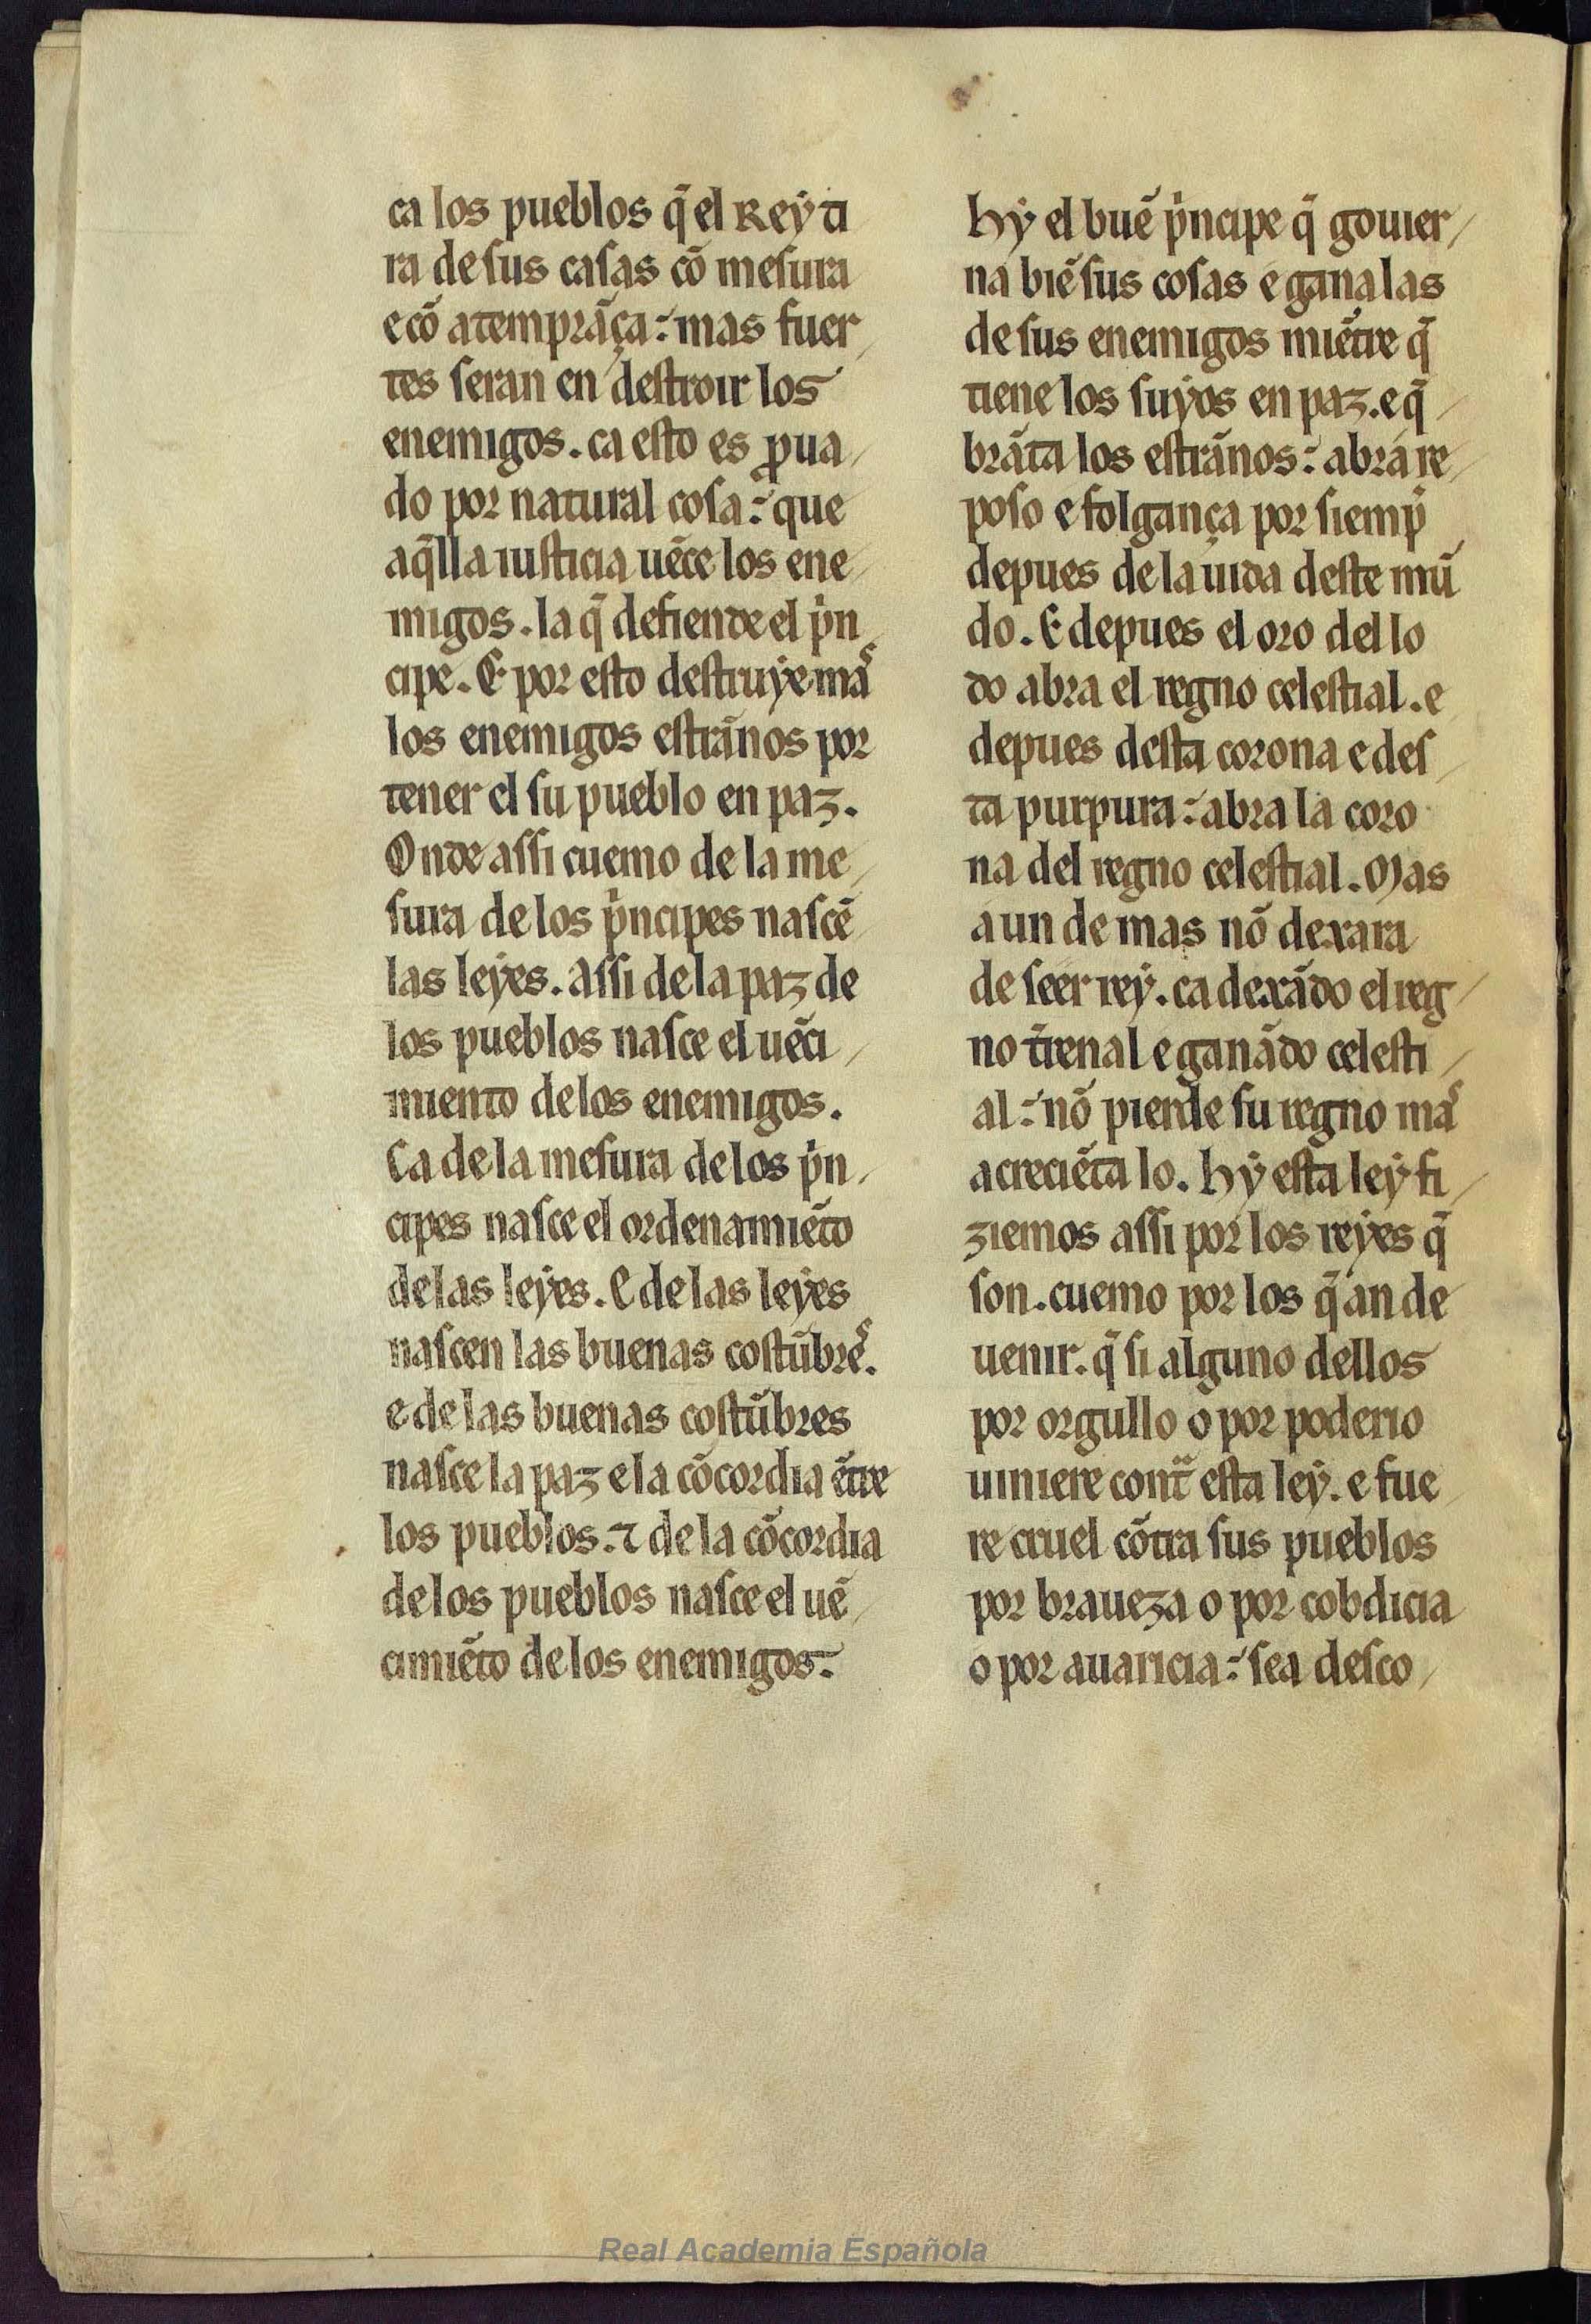 ca los pueblos q̃ el Rey ti
ra de sus casas cõ mesura
e cõ atemprãça: mas fuer
tes seran en destroir los
enemigos. ca esto es ꝓua
do por natural cosa: que
aq̃lla iusticia uẽce los ene
migos. la q̃ defiende el pͥn
cipe. E por esto destruye maˢ
los enemigos estrãnos por
tener el su pueblo en paz.
Onde assi cuemo de la me
sura de los pͥncipes nascẽ
las leyes. Assi de la paz de
los pueblos nasce el uẽci
miento de los enemigos.
Ca de la mesura de los pͥn
cipes nasce el ordenamiẽto
de las leyes. E de las leyes
nascen las buenas costũbreˢ.
e de las buenas costũbres
nasce la paz e la cõcordia ẽtre
los pueblos. ⁊ de la cõcordia
de los pueblos nasce el uẽ
cimiẽto de los enemigos.
Hy el buẽ pͥncipe q̃ gouier
na biẽ sus cosas e gana las
de sus enemigos miẽtre q̃
tiene los suyos en paz. e q̃
brãta los estrãnos: abra re
poso e folgança por siempͥ
depues de la uida deste mũ
do. E depues el oro del lo
do abra el regno celestial. e
depues desta corona e des
ta purpura: abra la coro
na del regno celestial. Mas
aun de mas nõ dexara
de seer rey. ca dexãdo el reg
no t̃renal e ganãdo celesti
al: nõ pierde su regno maˢ
acreciẽta lo. Hy esta ley fi
ziemos assi por los reyes q̃
son. cuemo por los q̃ an de
uenir. q̃ si alguno dellos
por orgullo o por poderio
uiniere contᷓ esta ley. e fue
re cruel cõtra sus pueblos
por braueza o por cobdicia
o por auaricia: sea desco
Real Academia Española